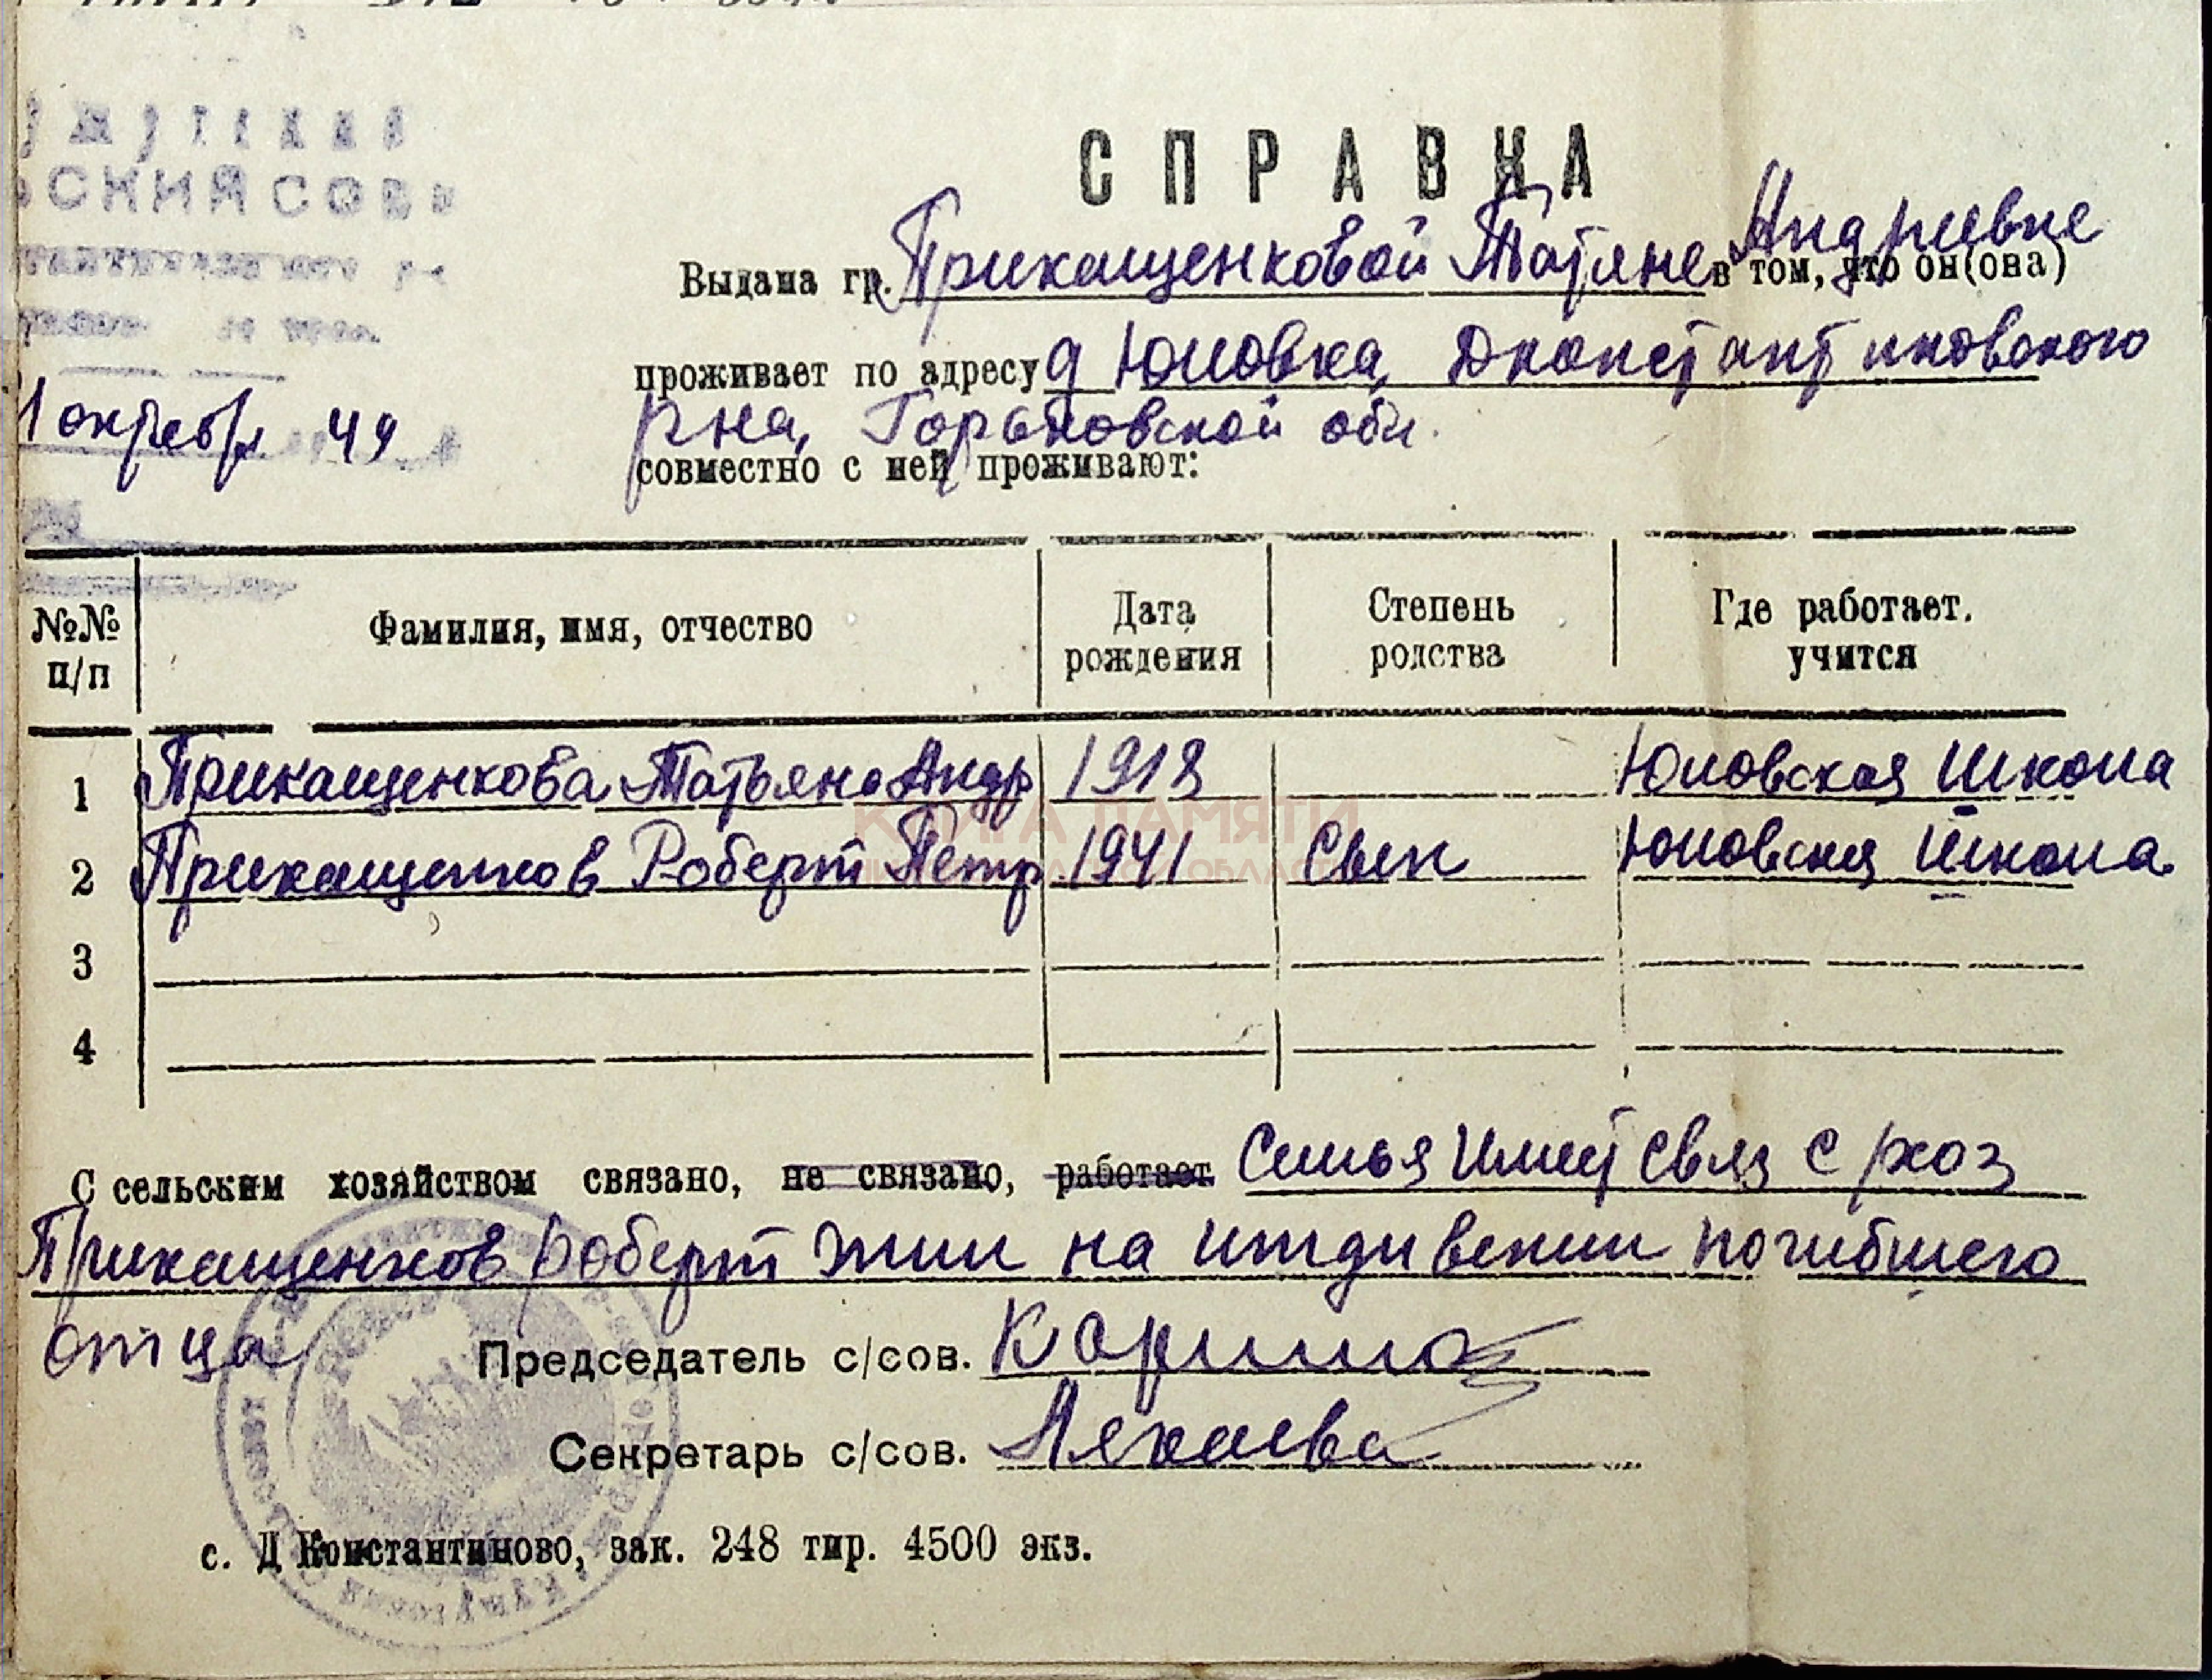 СПРАВКА
СКИЙ СОВ
Выдана гр. Прикащенковой Татяне Андриевне в том, что он(она)
проживает по адресу д Юловка, Дконстантиновского
рна, Горьковской обл.
1 октебр 49
совместно с ней проживают:
№№ п/п
Фамилия, имя, отчество
Дата рождения
Степень родства
Где работает. учится
1 Прикащенкова Татьяна Андр 1918 Юловская Школа
2 Прикащенков Роберт Петр 1941 Сын Юловская Школа
3
4
КНИГА ПАМЯТИ
С сельским хозяйством связано, не связано, работает Семья Имеет Связ с рхоз
Прикащенков Роберт жил на иждивении погибшего
отца
Председатель с/сов.
Секретарь с/сов.
с. Д Константиново, зак. 248 тир. 4500 экз.